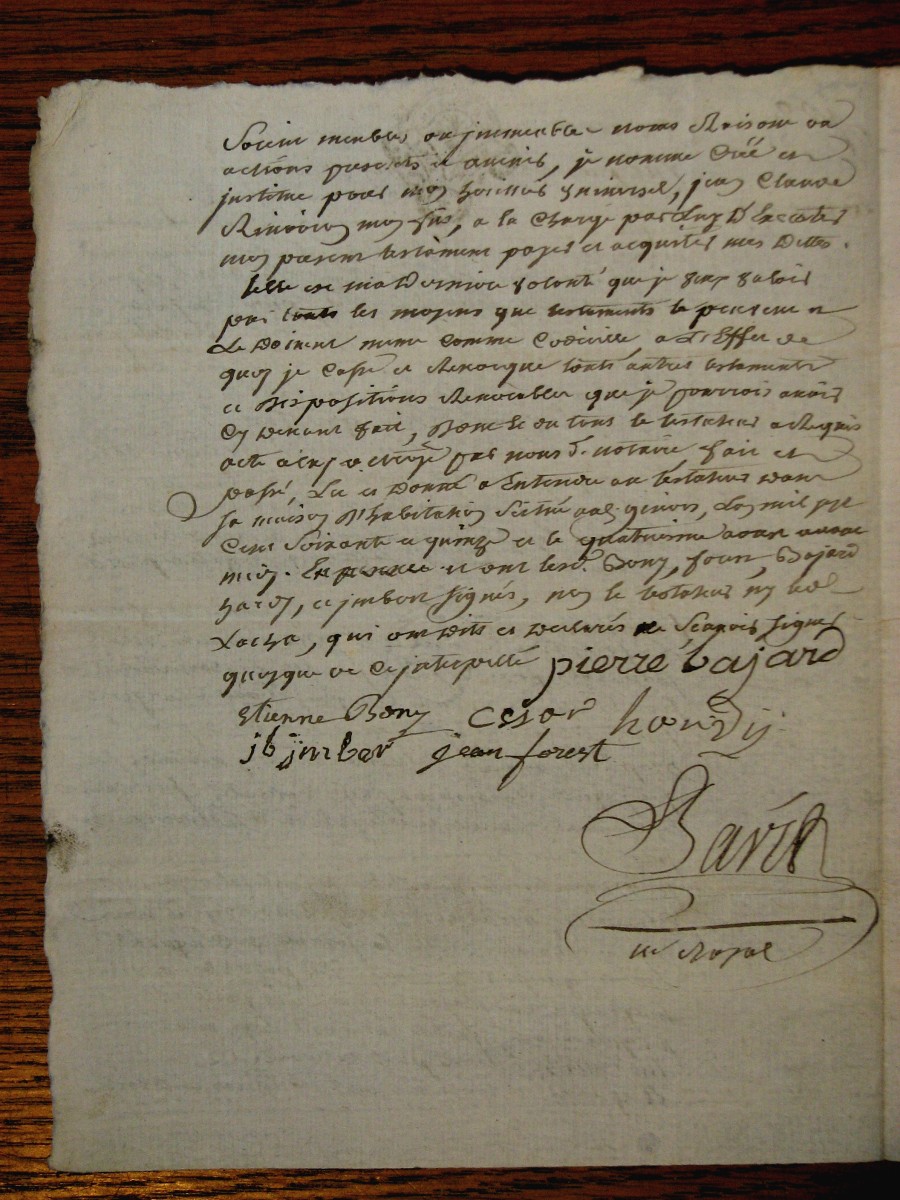 Soient meubles ou jmmeubles noms Raisons ou
actions presents et avenirs, je nomme Créé et
jnstitue pour mon heritier vniversel, jean Claude
mon fils, a la Charge par luy D'Executer
mon present testament payer et acquiter mes Dettes.
telle est ma Derniere volonté que je veux valoir
par touts les moyens que testaments le peuvent et
Le Doivent meme comme Codicille, a L'Effet de
quoy je Casse et Revoque touts autres testaments
et Dispositions Revocables que je pourrois avoir
Cy devant fait, Dont et du tout le testateur a Requis
acte a luy octroyé par nous d. notaire fait et
passé, Lu et Donné a Entendre au testateur Dans
sa maison D'habitation Scituée, L'an mil sept
Cent Soixante et quinze et le quatrieme avant
midy. et ont lesd. Bony, forest, Bajard
hardy, et jmbert signés, non le testateur ny led.
qui ont Dits et Declarés ne Scavoir signer
quoyque de Ce jnterpellé pierre bajard
etienne Bony Cesar hardy
jb jmber jean forest
re Royal